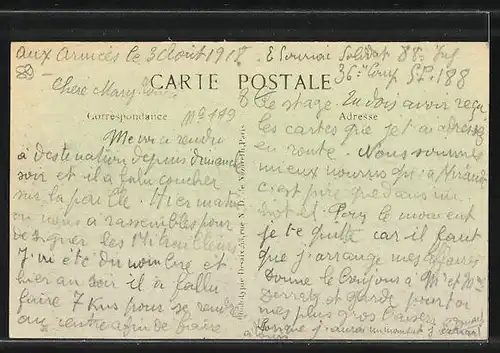 Aux Armées le 3 Août 1918. E Sourrou Soldat 88e Inf
36e Comp S.P. 188
Chère Mary
CARTE POSTALE
Correspondance
Adresse
No 199
Me voici rendu
à destination depuis dimanche
soir et il a falu coucher
sur la paille. Hier matin
on nous a rassemblés pour
désigner les Mitrailleurs
J'ai été du nombre et
hier au soir il a fallu
faire 7 Kms pour se rendre
au centre afin de faire
le stage. Tu dois avoir reçu
les cartes que je t'ai adressé
en route. Nous sommes
mieux nourris qu'à Mirande
c'est pire que dans un
hotel. Pour le moment
je te quitte car il faut
que j'arrange mes affaires
Donne le Bonjour à Mr et Mme
et garde pour toi
mes plus gros baisers
Lorsque j'aurai un moment j'écrirai